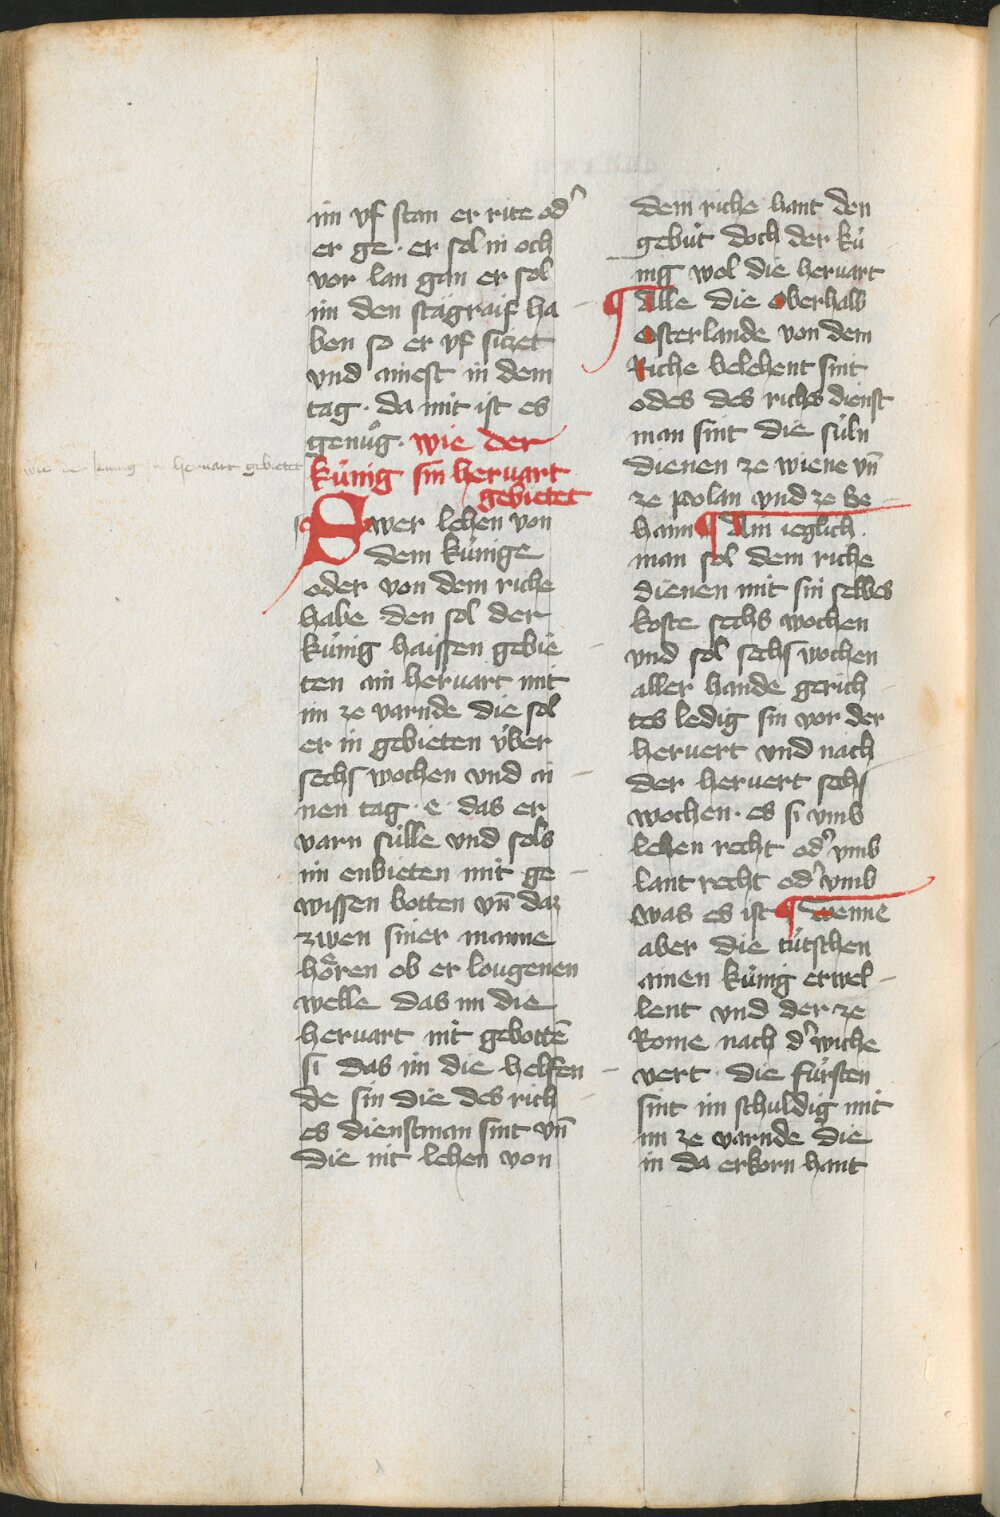 im vf stan er rite od᾽
er ge · er sol in och
vor lan gan er sol
im den stägraif ha
ben so er vf siczet
vnd ainest in dem
tag · da mit ist es
genuͦg · wie der
kúnig sin heruart
gebietet
wie der kunig sin heruart gebietet
Swer lehen von
dem kúnige
oder von dem riche
habe · den sol der
kúnig haissen gebie
ten ain heruart mit
im ze varnde die sol
er in gebieten vͥber
sechs wochen vnd ai
nen tag · e · das er
varn súlle vnd sols
im enbieten mit ge
wissen botten vn̄ daz
zwen siner manne
hoͤren ob er lougenen
welle das im die
heruart nit gebottē
si das im die helfen
de sin die des rich
es dienstman sint vn̄
die nit lehen von
dem riche hant den
gebút doch der kú
nig wol die heruart
¶ Alle die oberhalb
osterlande von dem
Riche belehent sint
odes des riches dienst
man sint die súln
dienen ze wiene vn̄
ze polan vnd ze be
haim ¶ Ain ieglich
man sol dem riche
dienen mit sin selbes
koste sechs wochen
vnd sol sechs wochen
aller hande gerich
tes ledig sin vor der
heruert vnd nach
der heruert sechs
wochen · es si vmb
lehen recht od᾽ vmb
lant recht od᾽ vmb
was es ist ¶ wenne
aber die tútschen
ainen kúnig erwel
lent vnd der ze
Rome nach d᾽ wiche
vert · die fúrsten
sint im schuldig mit
im ze varnde die
in da erkorn hant